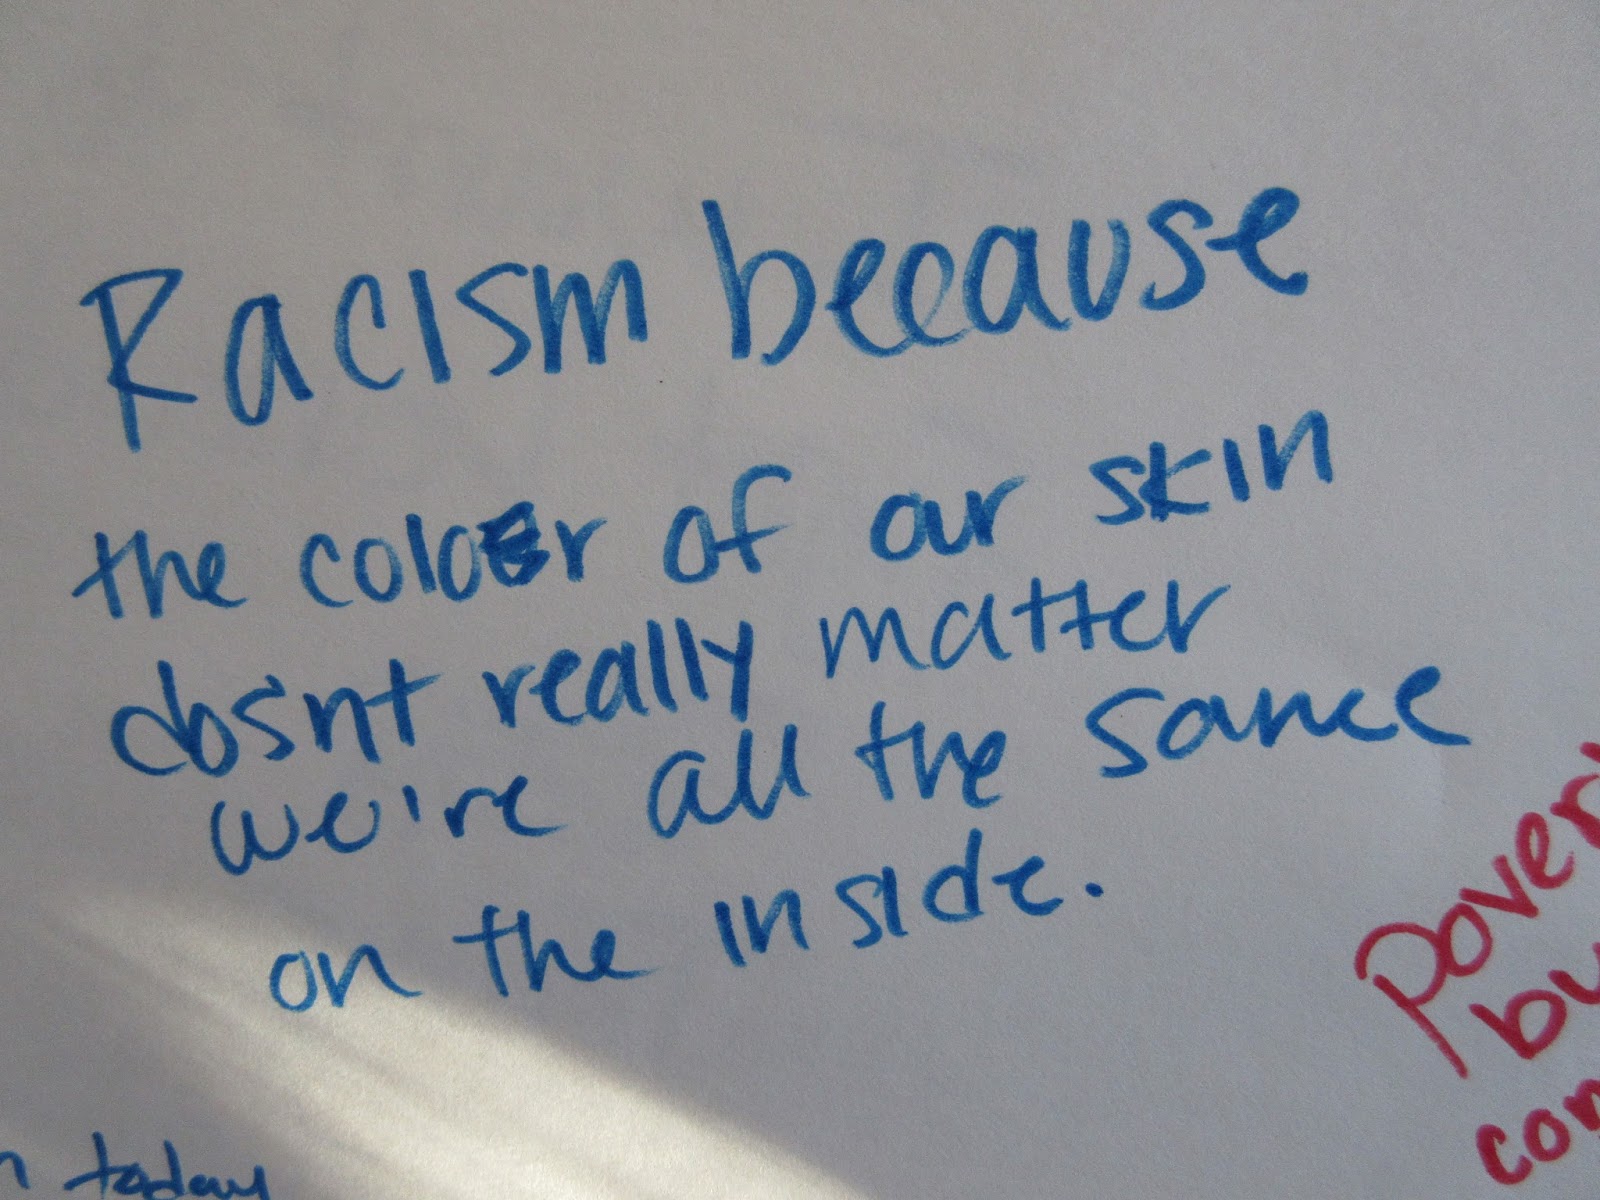 Racism because
the coloer of our skin
dosnt really matter
we're all the same
on the inside.
today